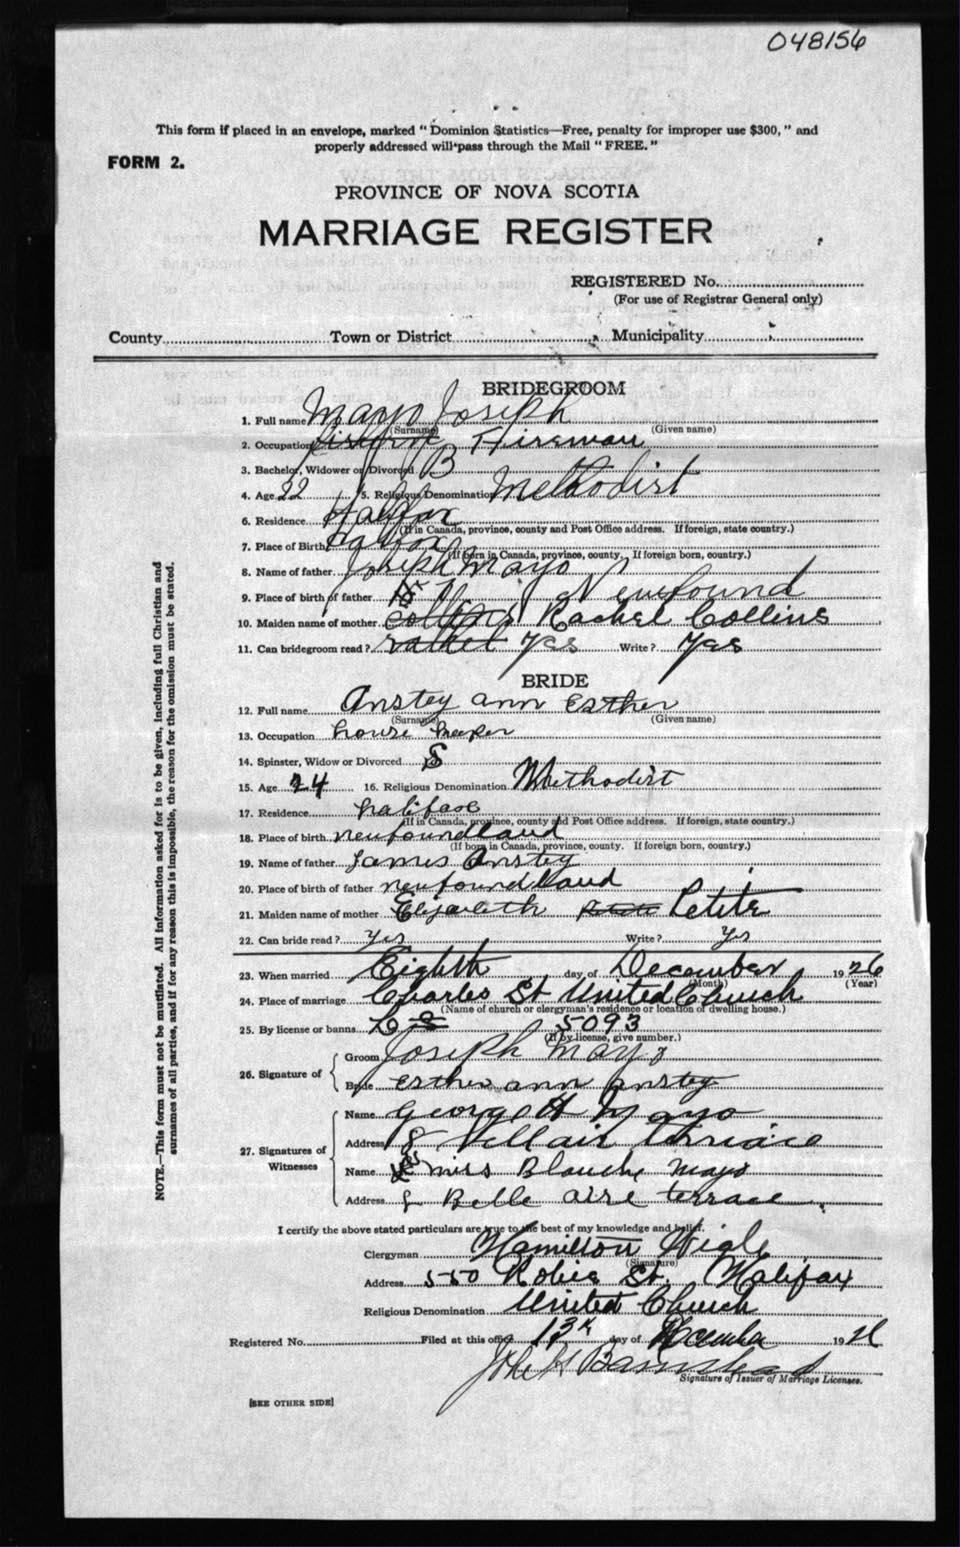 048156
This form if placed in an envelope, marked "Dominion Statistics—Free, penalty for improper use $300," and
properly addressed will pass through the Mail "FREE."
FORM 2.
PROVINCE OF NOVA SCOTIA
MARRIAGE REGISTER
REGISTERED No.
(For use of Registrar General only)
County Town or District Municipality
BRIDEGROOM
1. Full name Mayo Joseph
(Surname) (Given name)
2. Occupation Fireman
3. Bachelor, Widower or Divorced B
4. Age 22 5. Religious Denomination Methodist
6. Residence Halifax
(If in Canada, province, county and Post Office address. If foreign, state country.)
7. Place of Birth Halifax
(If born in Canada, province, county. If foreign born, country.)
8. Name of father Joseph Mayo
9. Place of birth of father Newfound
10. Maiden name of mother Collins Rachel Collins
11. Can bridegroom read? Yes Write? Yes
BRIDE
12. Full name Anstey ann Esther
(Surname) (Given name)
13. Occupation house keeper
14. Spinster, Widow or Divorced S
15. Age 24 16. Religious Denomination Methodist
17. Residence halifax
(If in Canada, province, county and Post Office address. If foreign, state country.)
18. Place of birth newfoundland
(If born in Canada, province, county. If foreign born, country.)
19. Name of father James Anstey
20. Place of birth of father newfoundland
21. Maiden name of mother Elizabeth Petite
22. Can bride read? Yes Write? Yes
23. When married Eighth day of December 1926
(Month) (Year)
24. Place of marriage Charles St United Church
(Name of church or clergyman's residence or location of dwelling house.)
25. By license or banns L 5093
(If by license, give number.)
26. Signature of
Groom Joseph Mayo
Bride Esther ann Anstey
27. Signatures of Witnesses
Name George H Mayo
Address 8 Terriace
Name Mrs Blanche Mayo
Address 8 Belle aire terrace
I certify the above stated particulars are true to the best of my knowledge and belief.
Clergyman Hamilton Wigle
(Signature)
Address 550 Robie St. Halifax
Religious Denomination United Church
Registered No. Filed at this office 13th day of December 1926
Barnstead
Signature of Issuer of Marriage Licenses.
[SEE OTHER SIDE]
NOTE.—This form must not be mutilated. All information asked for is to be given, including full Christian and
surnames of all parties, and if for any reason this is impossible, the reason for the omission must be stated.